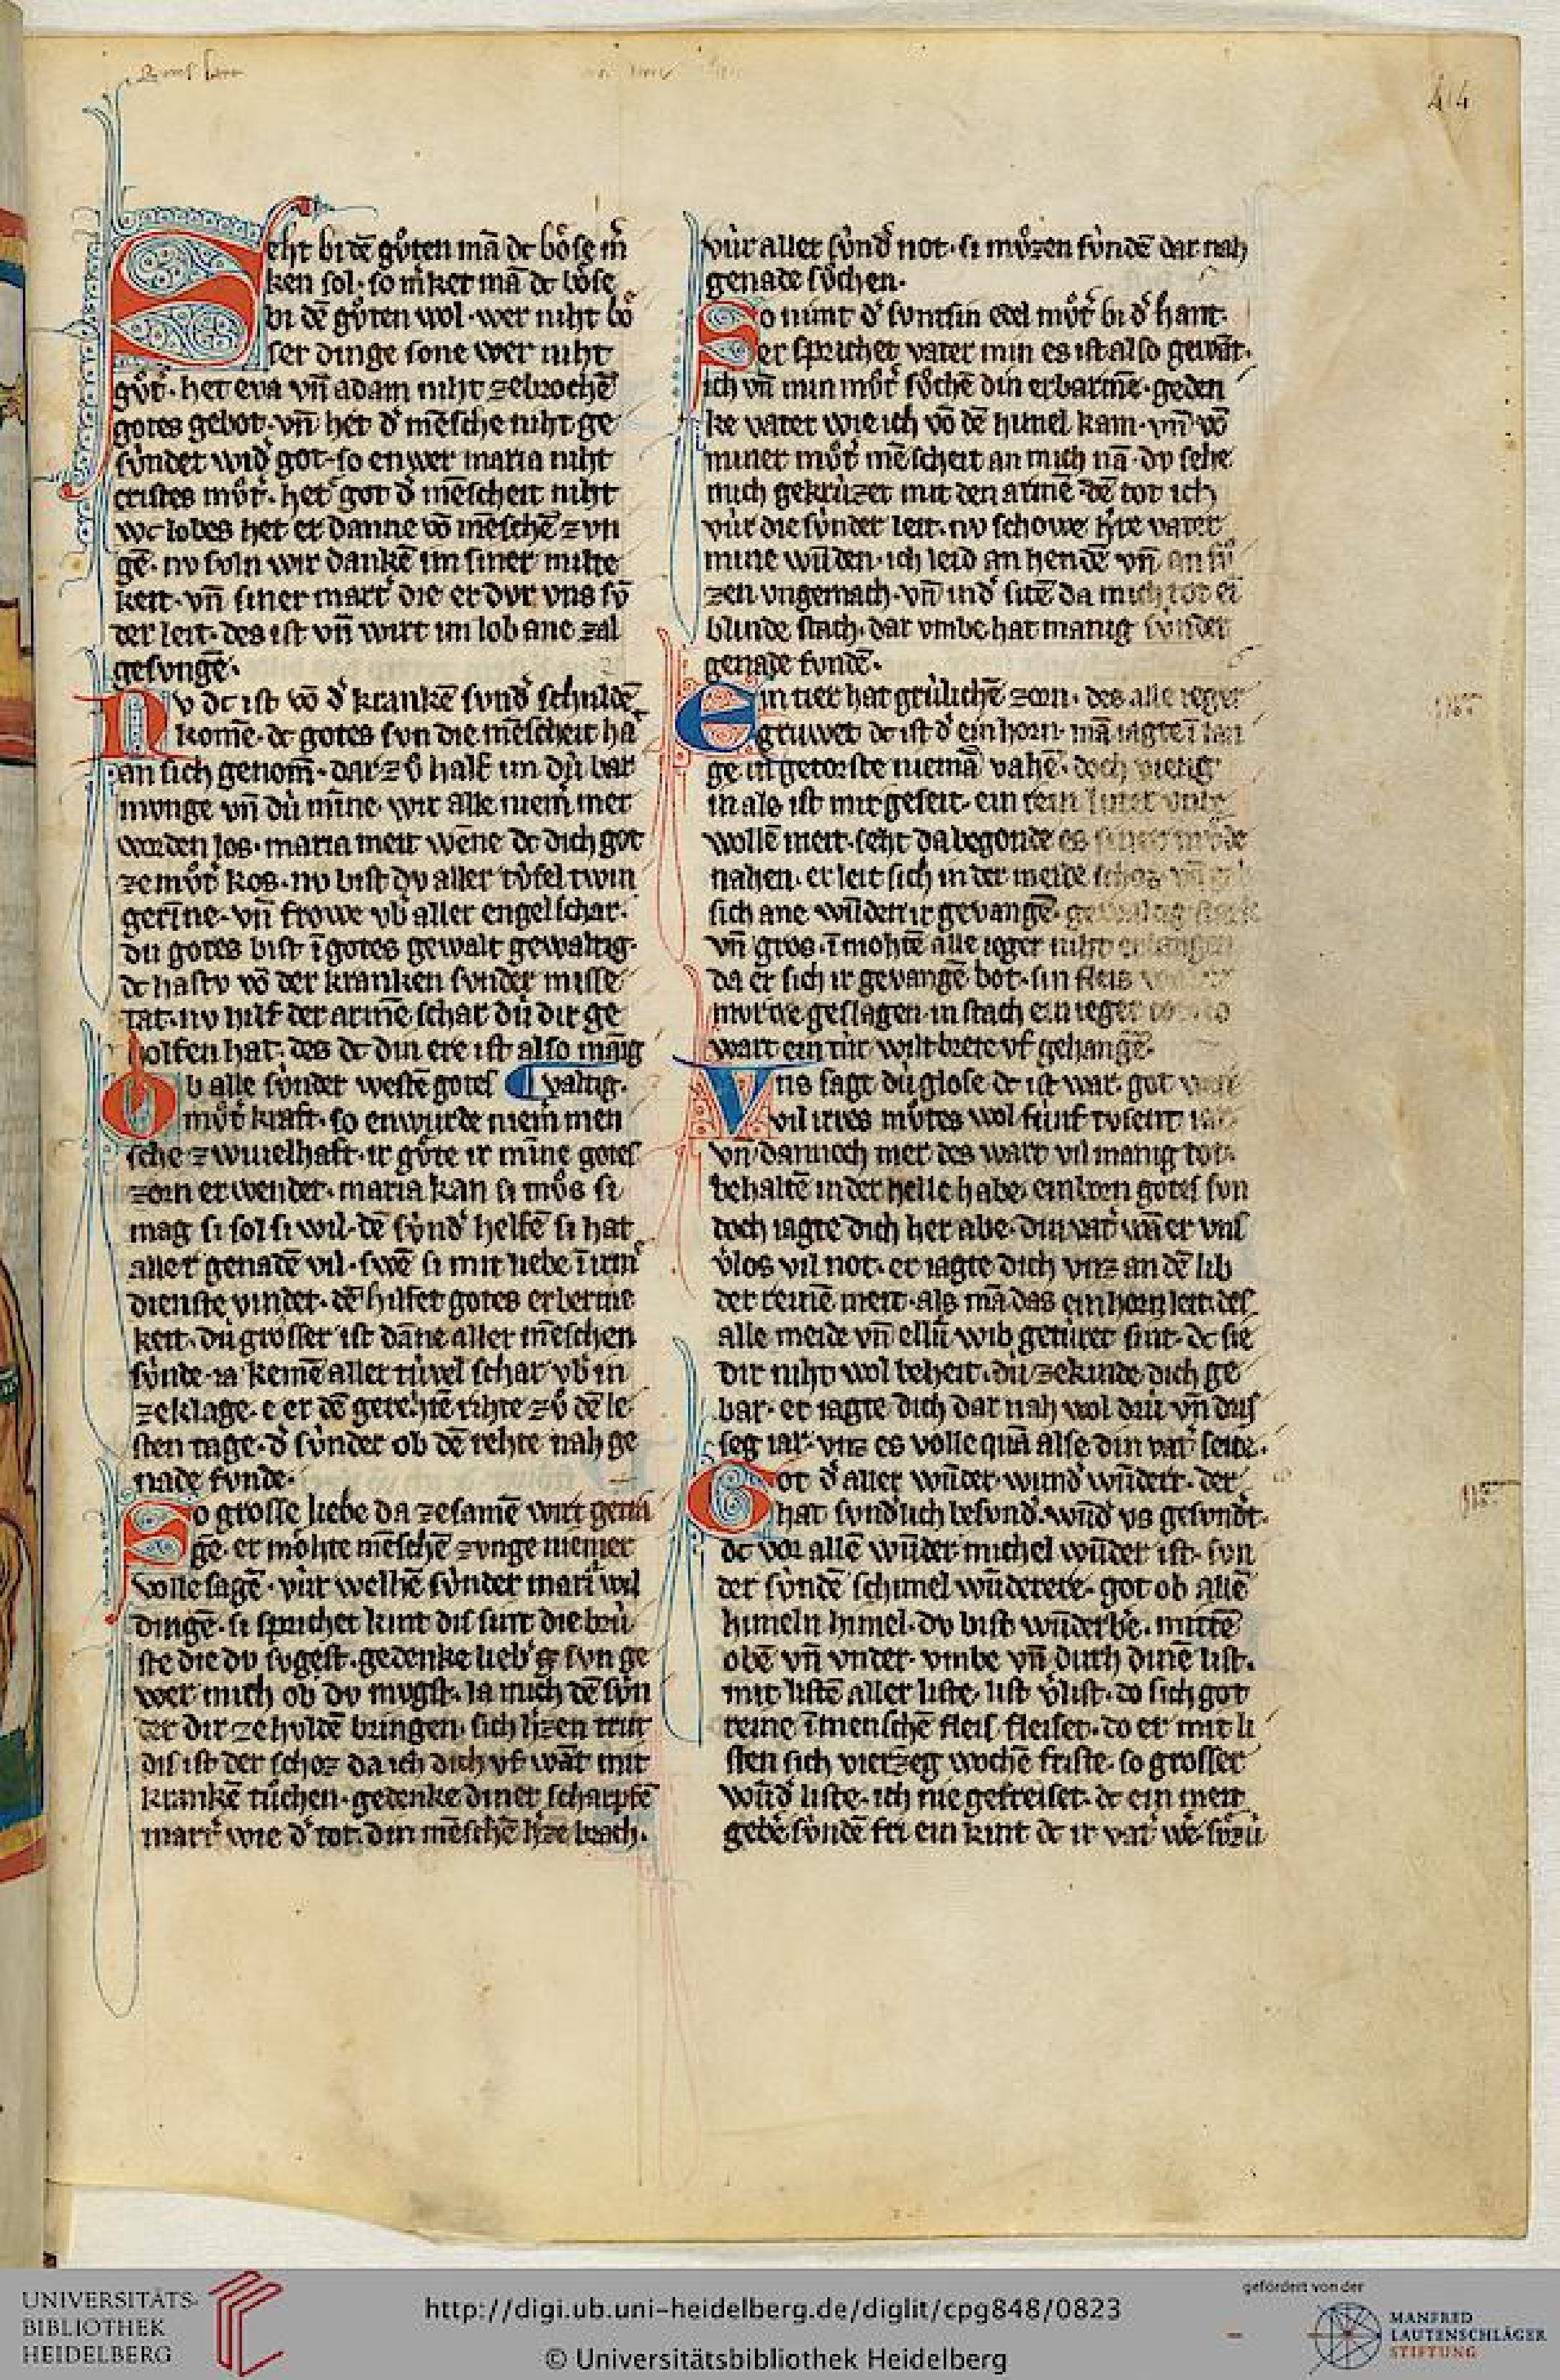 414
Seht bi dē gůten mā dc bôse m̄
ken sol· so m̄ket mā dc bôse
bi dē gůten wol· wer niht bô
ser dinge sone wer niht
gůt· het eva vn̄ adam niht zebrochē
gotes gebot· vn̄ het d' mēsche niht ge
sv́ndet wid' got· so enwer maria niht
cristes můt'· het got d' mēscheit niht
wc lobes het er danne vō mēschē zvn
gē· nv soln wir dankē im siner milte
keit· vn̄ siner mart' die er dvr vns sv́
der leit· des ist vn̄ wirt im lob ane zal
gesvngē·
Nv dc ist vō d' krankē sv́nd' schuldē
komē· dc gotes svn die mēscheit ha
an sich genom̄· dar zů half im dú bar
mvnge vn̄ dú mīne· wir alle niem̄ mer
worden los· maria meit wēne dc dich got
ze můt' kos· nv bist dv aller tv́fel twin
gerīne· vn̄ frowe vb' aller engel schar·
du gotes bist ī gotes gewalt gewaltig·
dc hastv vō der kranken sv́nder misse
tat· nv hilf der armē schar dú dir ge
holfen hat· des dc din ere ist also māig
Ob alle sv́nder westē gotes valtig·
můt' kraft· so enwurde niem̄ men
sche zwiuelhaft· ir gůte ir mīne gotes
zorn erwendet· maria kan si můs si
mag si sol si wil· dē sv́nd' helfē si hat
aller genadē vil· swē si mit liebe ī irm
dienste vindet· dē hilfet gotes erberme
keit· dú grosser ist dāne aller mēschen
sv́nde· ia kemē aller túvel schar vb' in
ze klage· e er dē gerehtē rihte zů dē le
sten tage· d' sv́nder ob dē rehte nah ge
nade funde·
So grosse liebe da zesamē wirt
gē· er môhte mēschē zvnge niemer
volle sagē· vúr welhē sv́nder mari wil
dingē· si sprichet kint dis sint die brú
ste die dv sugest· gedenke lieb' svn ge
wer mich ob dv mvgst· la mich dē sv́n
der dir ze hvldē bringen· sich hzen trut
dis ist der schoz da ich dich vf wāt mit
krankē tůchen· gedenke diner scharpfē
mart' wie d' tot din mēschē hze brach·
vúr aller sv́nd' not· si můzen sv́ndē dar nah
genade sůchen·
So nimt d' svn sin edel můt' bi d' hant·
er sprichet vater min es ist also gewāt·
ich vn̄ min můt' sůchē din erbarmē· geden
ke vater wie ich vō dē himel kam· vn̄ vō
miner můt' mēscheit an mich nā· dv sehe
mich gekrúzet mit den armē· dē tot ich
vúr die sv́nder leit· nv schowe h're vater
mine wūden· ich leid an hendē vn̄ an fů
zen vngemach· vn̄ in d' sitē da mich tot eī
blinde stach· dar vmbe hat manig sv́nder
genade fundē·
Ein tier hat grúlichē zorn· des alle ieger
gruwet dc ist d' einhorn· mā iagte ī lan
ge in getorste niemā vahē· doch vieng
in als ist mir geseit· ein rein luter vnv
wollē meit· seht da begonde es
nahen· er leit sich in der meide schoz· vn̄ gab
sich ane wūden ir gevangē· gewaltig stark
vn̄ gros· ī mohtē alle ieger niht erlangen
da er sich ir gevangē bot· sin fleis
mvrwe geslagen· in stach ein ieger
wart ein túr wiltbrete vf gehangē·
Vns sagt dú glose dc ist war· got
vil irres můtes wol fúnf tvsent iar
vn̄ dannoch mer· des wart vil manig tot
behaltē in der helle habe· einborn gotes svn
doch iagte dich her abe· din vat' wan er vns
v'los vil not· er iagte dich vnz an dē lib
der reinē meit· als mā das einhorn leit· des
alle meide vn̄ ellú wib getúret sint· dc sie
dir niht wol beheit· dú ze kinde dich ge
bar· er iagte dich dar nah wol drú vn̄ dris
seg iar· vnz es volle quā alse din vat' seite·
Got d' aller wūder wund' wūdert· der
hat sv́ndlich besvnd' wūd' vs gesvndt·
dc vor allē wūder michel wūder ist· svn
der sv́ndē schimel wūderere· got ob allē
himeln himel· dv bist wūderbe'· mittē
obē vn̄ vnder· vmbe vn̄ durh dinē list·
mit listē aller liste list v'list· do sich got
reine ī menschē fleis fleiset· do er mit li
sten sich vierzeg wochē friste· so grosser
wūd' liste· ich nie gefreiset· dc ein meit
geb'e sv́ndē fri ein kint dc ir vat' we'· fv́rzú
UNIVERSITÄTS-
BIBLIOTHEK
HEIDELBERG
http://digi.ub.uni-heidelberg.de/diglit/cpg848/0823
© Universitätsbibliothek Heidelberg
gefördert von der
MANFRED
LAUTENSCHLÄGER
STIFTUNG